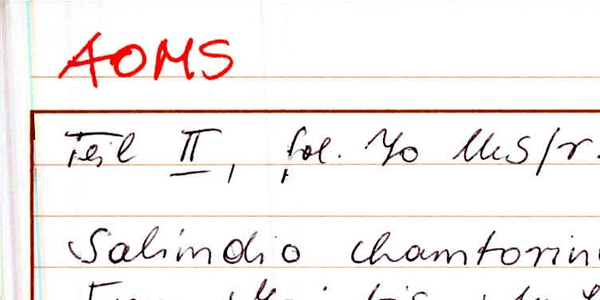 AOMS
Teil II, fol. 70 MS/r.
Salimdio chamtorin